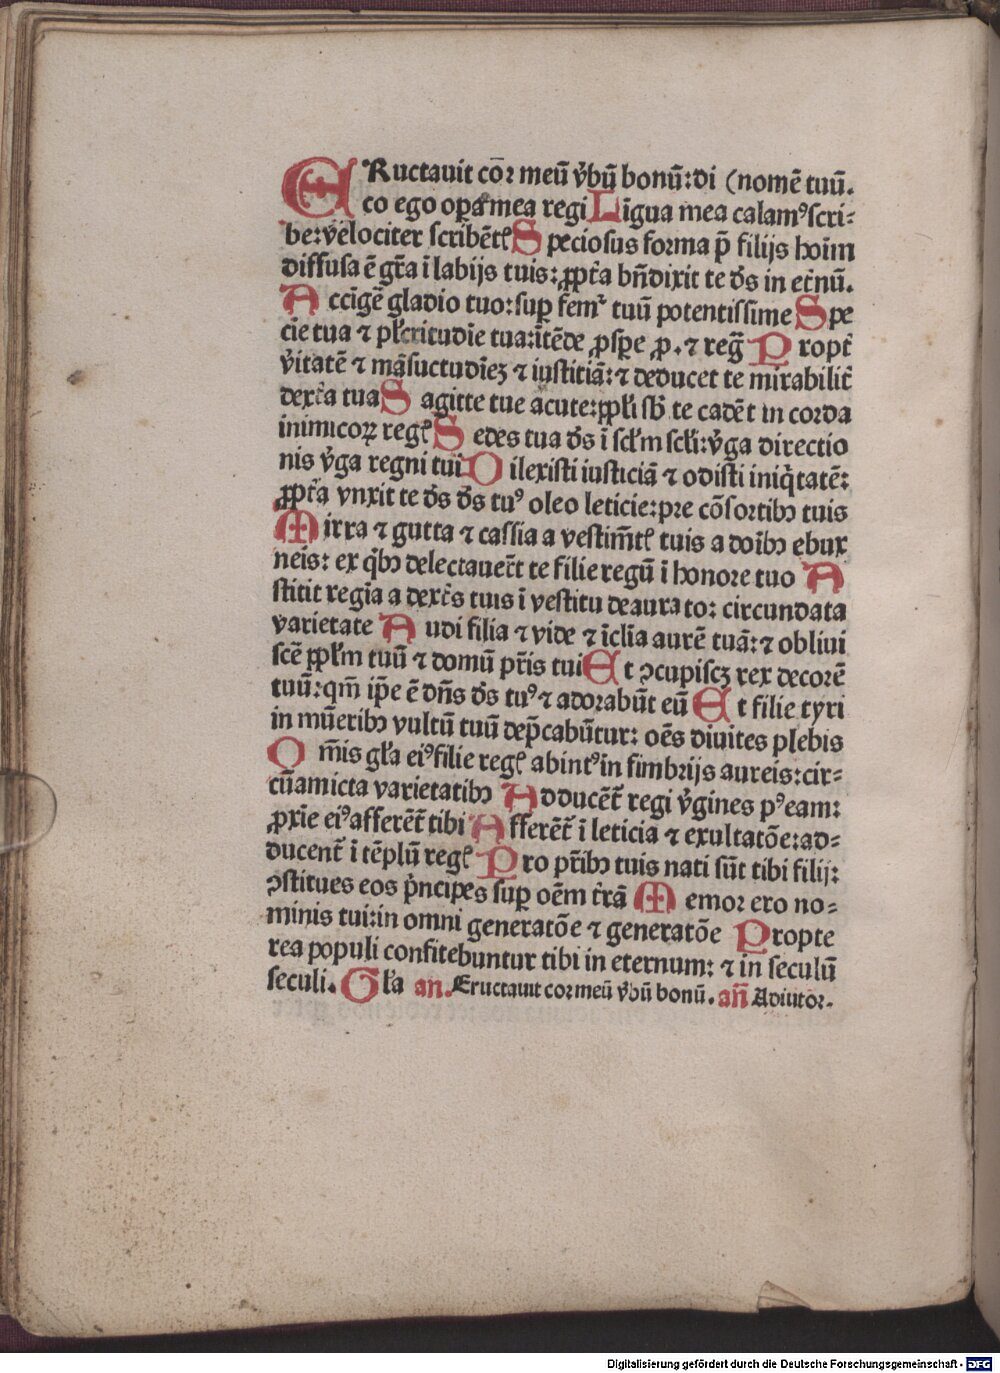 ERuctauit cor̄ meū v̓bū bonū: di (nomē tuū.
co ego oꝑa mea regi Līgua mea calamꝰ scri-
be: v̓elociter scribēt̄ꝭ Speciosus forma p̄ filijs hoīm
diffusa ē gr̄a ī labijs tuis: ꝓpt̓a bn̄dixit te dʼs in et̓nū.
Accīge gladio tuo: suꝑ femꝛ̓ tuū potentissime Spe
cīe tua ⁊ pl̓critudīe tua: ītēde ꝓsꝑe ꝓ. ⁊ reg̃ Propt̓
v̓itatē ⁊ māsuetudīeꝫ ⁊ iustitiā: ⁊ deducet te mirabilit̓
dext̓a tua Sagitte tue acute: ppl̓i sb̓ te cadēt in corda
inimicoꝝ regꝭ Sedes tua dʼs ī scl̓m scl̓i: v̓ga directio
nis v̓ga regni tui Dilexisti iusticiā ⁊ odisti iniq̓tatē:
ꝓpt̓a vnxit te dʼs dʼs tuꝰ oleo leticie: pre cōsortibꝰ tuis
Mirra ⁊ gutta ⁊ cassia a vestim̄tꝭ tuis a doībꝰ ebur
neis: ex qͥbꝰ delectauer̄t te filie regū ī honore tuo A
stitit regīa a dext̓s tuis ī vestitu deaurato: circundata
varietate Audi filia ⁊ vide ⁊ īclīa aurē tuā: ⁊ obliui
scē ppl̓m tuū ⁊ domū pr̄is tui Et ꝯcupiscꝫ rex decorē
tuū: qm̄ ip̄e ē dn̄s dʼs tuꝰ ⁊ adorabūt eū Et filie tyri
in mūeribꝰ vultū tuū dep̄cabūtur: oēs diuites plebis
Om̄is gl̓a eiꝰ filie regꝭ abintꝰ in fimbrijs aureis: cir-
cūamicta varietatibꝰ Adducēt̄ regi v̓gines pꝰ eam:
ꝓxīe eiꝰ afferēt̄ tibi Afferēt̄ ī leticia ⁊ exultatōe: ad-
ducent̄ ī tēplū regꝭ Pro pr̄ibꝰ tuis nati sūt tibi filij:
ꝯstitues eos pͥncipes suꝑ oēm t̓rā Memor ero no-
minis tui: in omni generatōe ⁊ generatōe Propte
rea populi confitebuntur tibi in eternum: ⁊ in seculū
seculi. Gl̓a an. Eructauit cor meū v̓bū bonū. an̄ Adiutor.
Digitalisierung gefördert durch die Deutsche Forschungsgemeinschaft - DFG